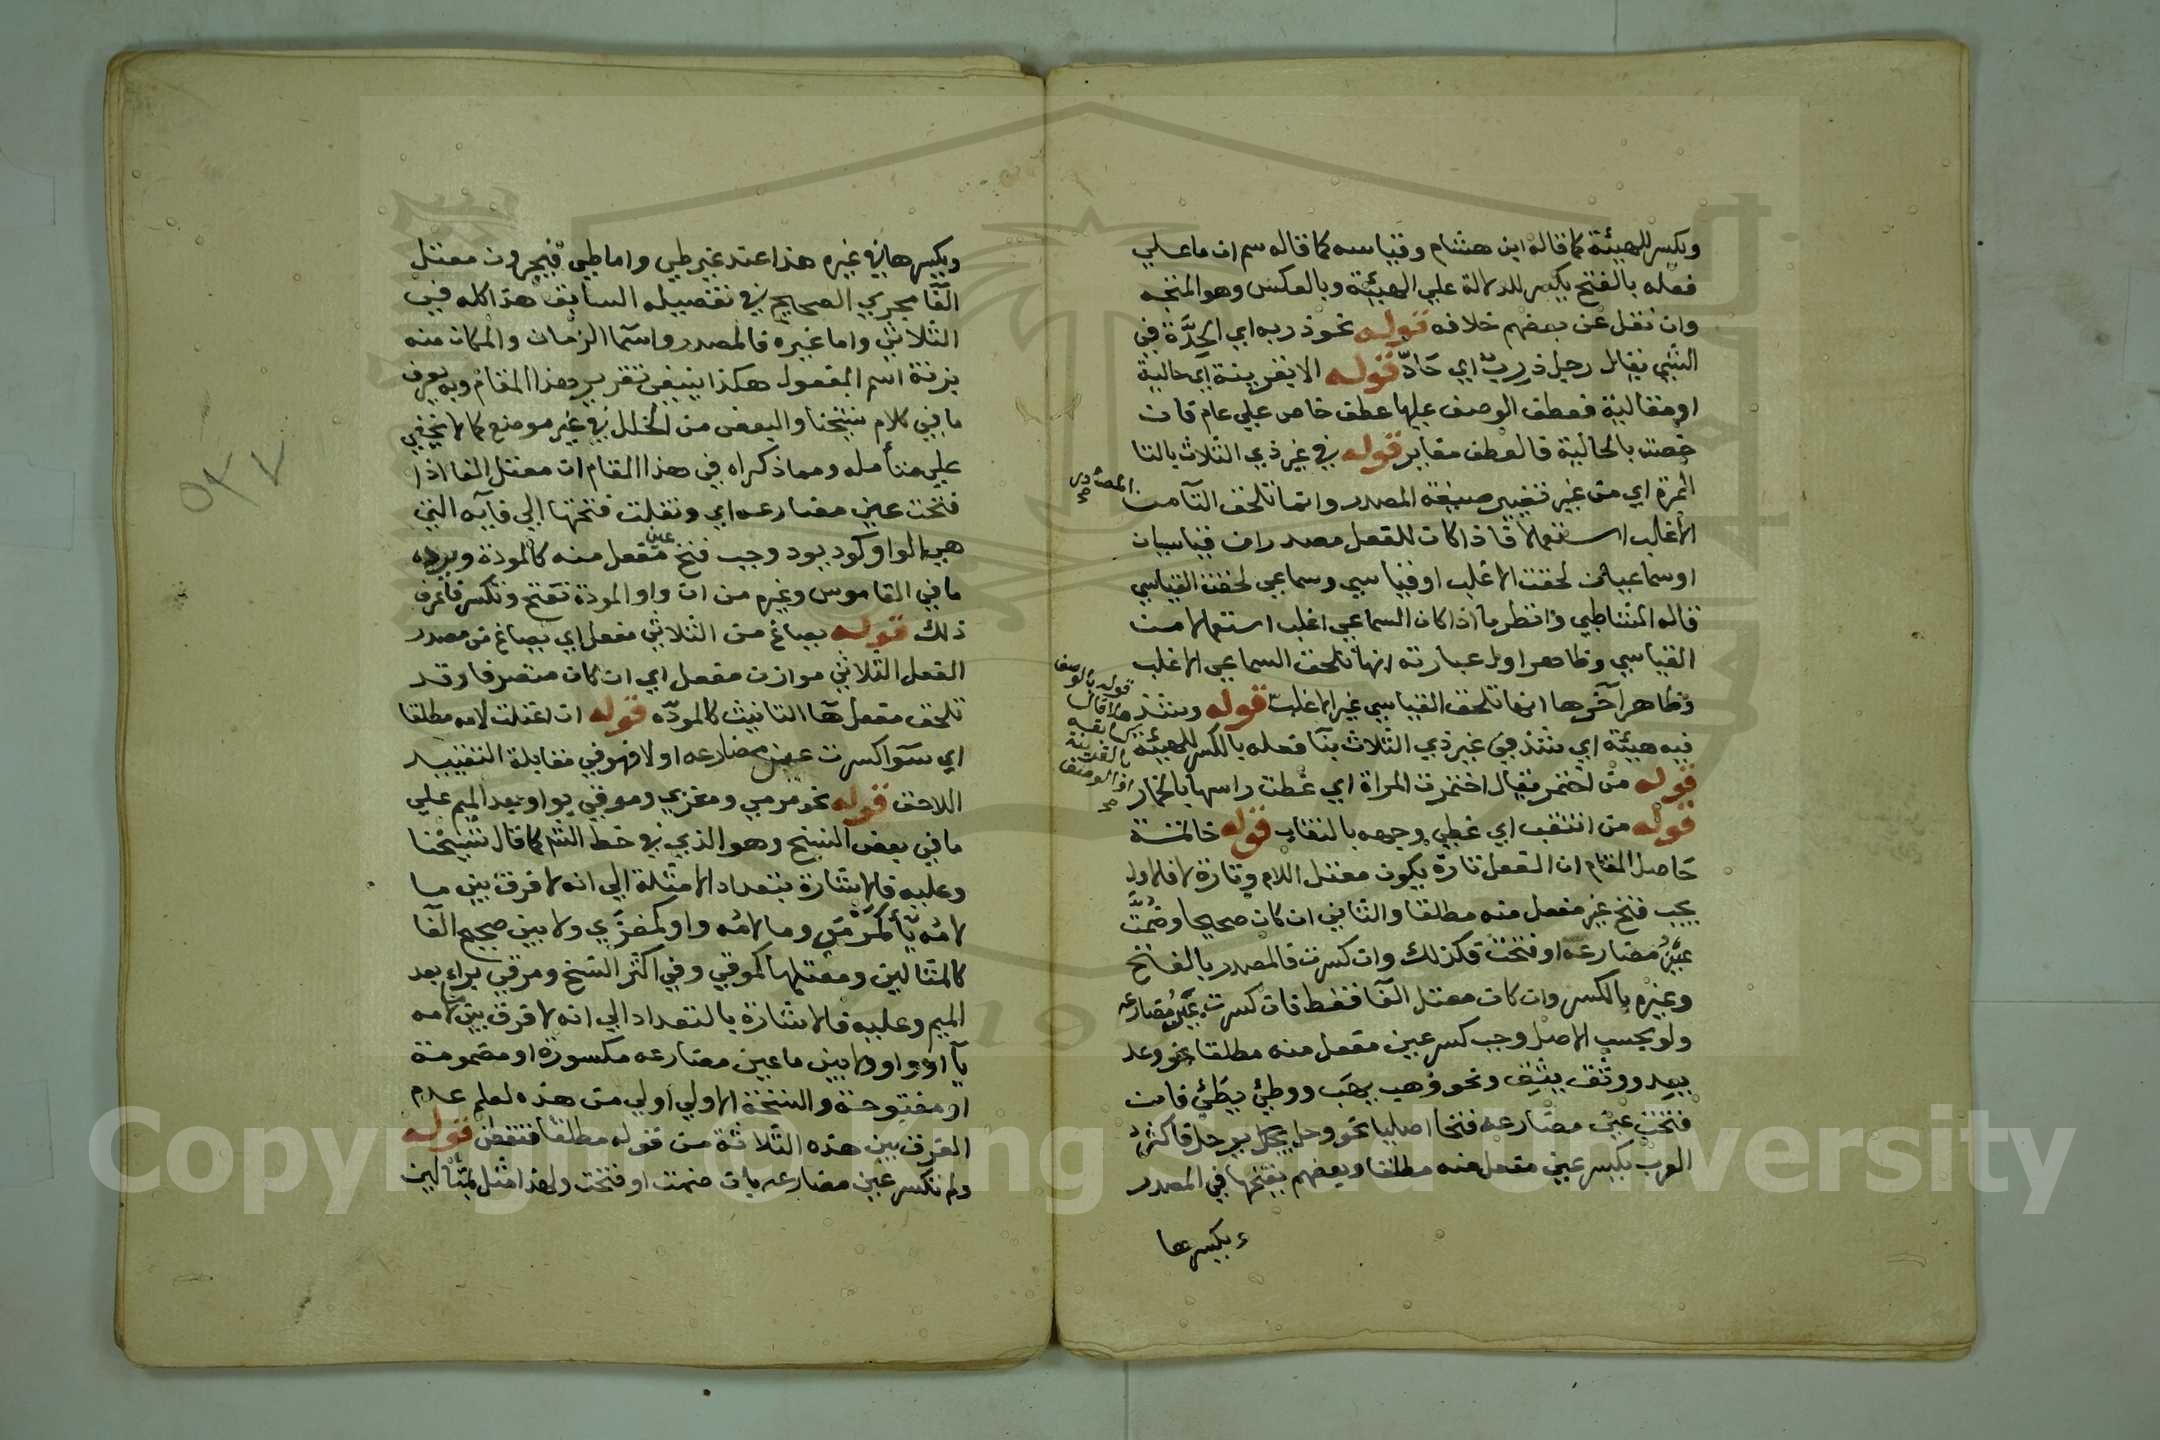 ويكسر للهيئة كما قاله ابن هشام وقياسه كما قاله سم ان ما علي
فعله بالفتح يكسر للدلالة علي الهيئة وبالعكس وهو المتجه
وان نقل عن بعضهم خلافه قوله نحو ذربه اي الحدة في
الشي يقال رجل ذرب اي حاد قوله الا بقرينة اي حالية
او مقالية فعطف الوصف عليها عطف خاص علي عام فان
خصت بالحالية فالعطف مغاير قوله في غير ذي الثلاث بالتا
المرة اي من غير تغيير صيغة المصدر وانما تلحق التآ من المصادر صح
الاغلب استعمالا فاذا كان للفعل مصدران قياسيان
او سماعيان لحقت الاغلب او قياسي وسماعي لحقت القياسي
قاله الشاطبي وانظر ما اذا كان السماعي اغلب استعمالا من
القياسي وظاهر اول عبارته انها تلحق السماعي الاغلب
وظاهر آخرها انها تلحق القياسي غير الاغلب قوله وشذ
فيه هيئة اي شذ في غير ذي الثلاث بنآ فعله بالكسر للهيئة
قوله من اختمر يقال اختمرت المراة اي غطت راسها بالخمار
قوله من انتقب اي غطي وجهه بالنقاب قوله خاتمة
حاصل المقام ان الفعل تارة يكون معتل اللام وتارة لا فالاول
يجب فتح عين مفعل منه مطلقا والثاني ان كان صحيحا وضمت
عين مضارعه او فتحت فكذلك وان كسرت فالمصدر بالفتح
وغيره بالكسر وان كان معتل الفآ فقط فان كسرت عين مضارعه
ولو بحسب الاصل وجب كسر عين مفعل منه مطلقا نحو وعد
يعد ووثق يثق ونحو وهب يهب ووطئ يطئ فان
فتحت عين مضارعه فتحا اصليا نحو وحل يوحل فاكثر
العرب بكسر عين مفعل منه مطلقا وبعضهم بفتحها في المصدر
وبكسرها
قوله بالوصف
بالقرينة
او الوصف
صح
وبكسرها في غيره هذا عند غير طي واما طي فيجرون معتل
الفآ مجري الصحيح في تفصيله السابق هذا كله في
الثلاثي واما غيره فالمصدر واسما الزمان والمكان منه
بزنة اسم المفعول هكذا ينبغي تقرير هذا المقام وبه يعرف
ما في كلام شيخنا والبعض من الخلل في غير موضع كما لا يخفي
علي متأمله ومما ذكراه في هذا المقام ان معتل الفا اذا
فتحت عين مضارعه اي ونقلت فتحتها الي فآيه التي
هي الواو كود يود وجب فتح عين مفعل منه كالمودة ويرده
ما في القاموس وغيره من ان واو المودة تفتح وتكسر فاعرف
ذلك قوله يصاغ من الثلاثي مفعل اي يصاغ من مصدر
الفعل الثلاثي موازن مفعل اي ان كان متصرفا وقد
تلحق مفعل هآ التانيث كالمودة قوله ان اعتلت لامه مطلقا
اي سوآ كسرت عين مضارعه اولا فهو في مقابلة التقييد
اللاحق قوله نحو مرمي ومغزي وموقي بواو بعد الميم علي
ما في بعض النسخ وهو الذي في خط الش كما قال شيخنا
وعليه فالاشارة بتعداد الامثلة الي انه لا فرق بين ما
لامه يآ كمرمي وما لامه واو كمغزي ولا بين صحيح الفآ
كالمثالين ومعتلها كموقي وفي اكثر النسخ ومرقي براء بعد
الميم وعليه فالاشارة بالتعداد الي انه لا فرق بين ما لامه
يآ او واو ولا بين ما عين مضارعه مكسورة او مضمومة
او مفتوحة والنسخة الاولي اولي من هذه لعلم عدم
الفرق بين هذه الثلاثة من قوله مطلقا فتفطن قوله
ولم تكسر عين مضارعه بان ضمت او فتحت ولهذا مثل بمثالين
Copyright © King Saud University